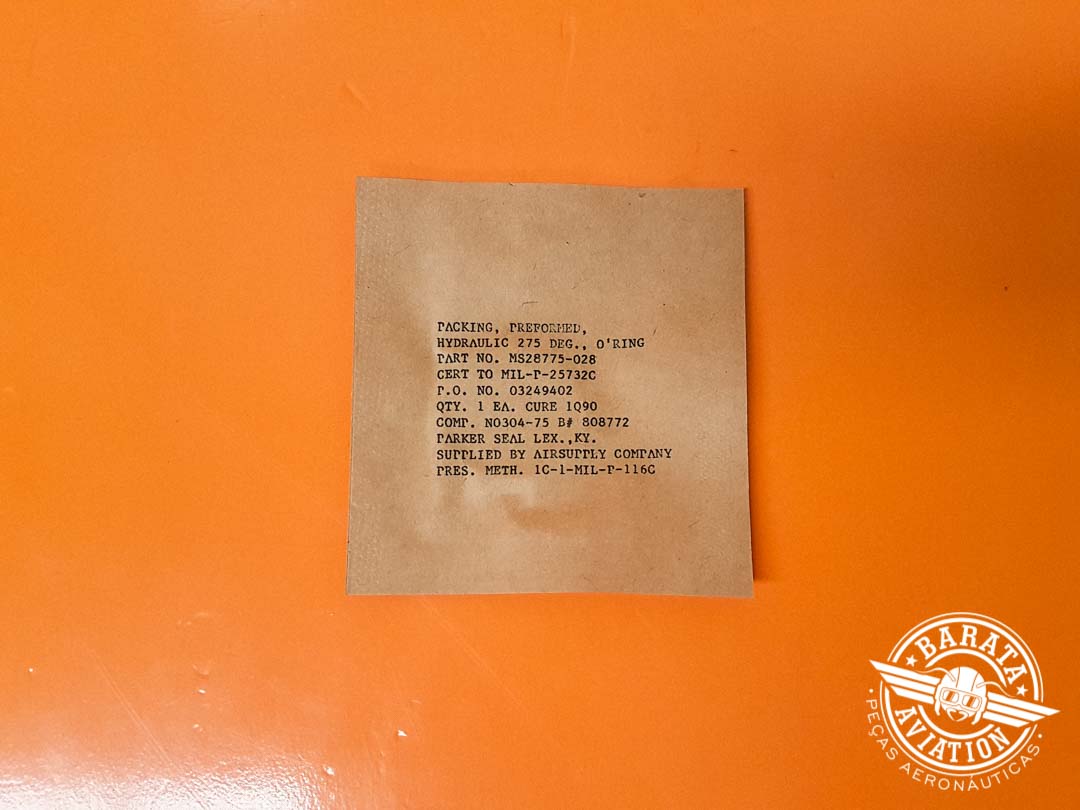 PACKING, PREFORMED,
HYDRAULIC 275 DEG., O'RING
PART NO. MS28775-028
CERT TO MIL-P-25732C
P.O. NO. 03249402
QTY. 1 EA. CURE 1Q90
COMP. N0304-75 B# 808772
PARKER SEAL LEX.,KY.
SUPPLIED BY AIRSUPPLY COMPANY
PRES. METH. 1C-1-MIL-P-116C
BARATA
AVIATION
PEÇAS AERONÁUTICAS